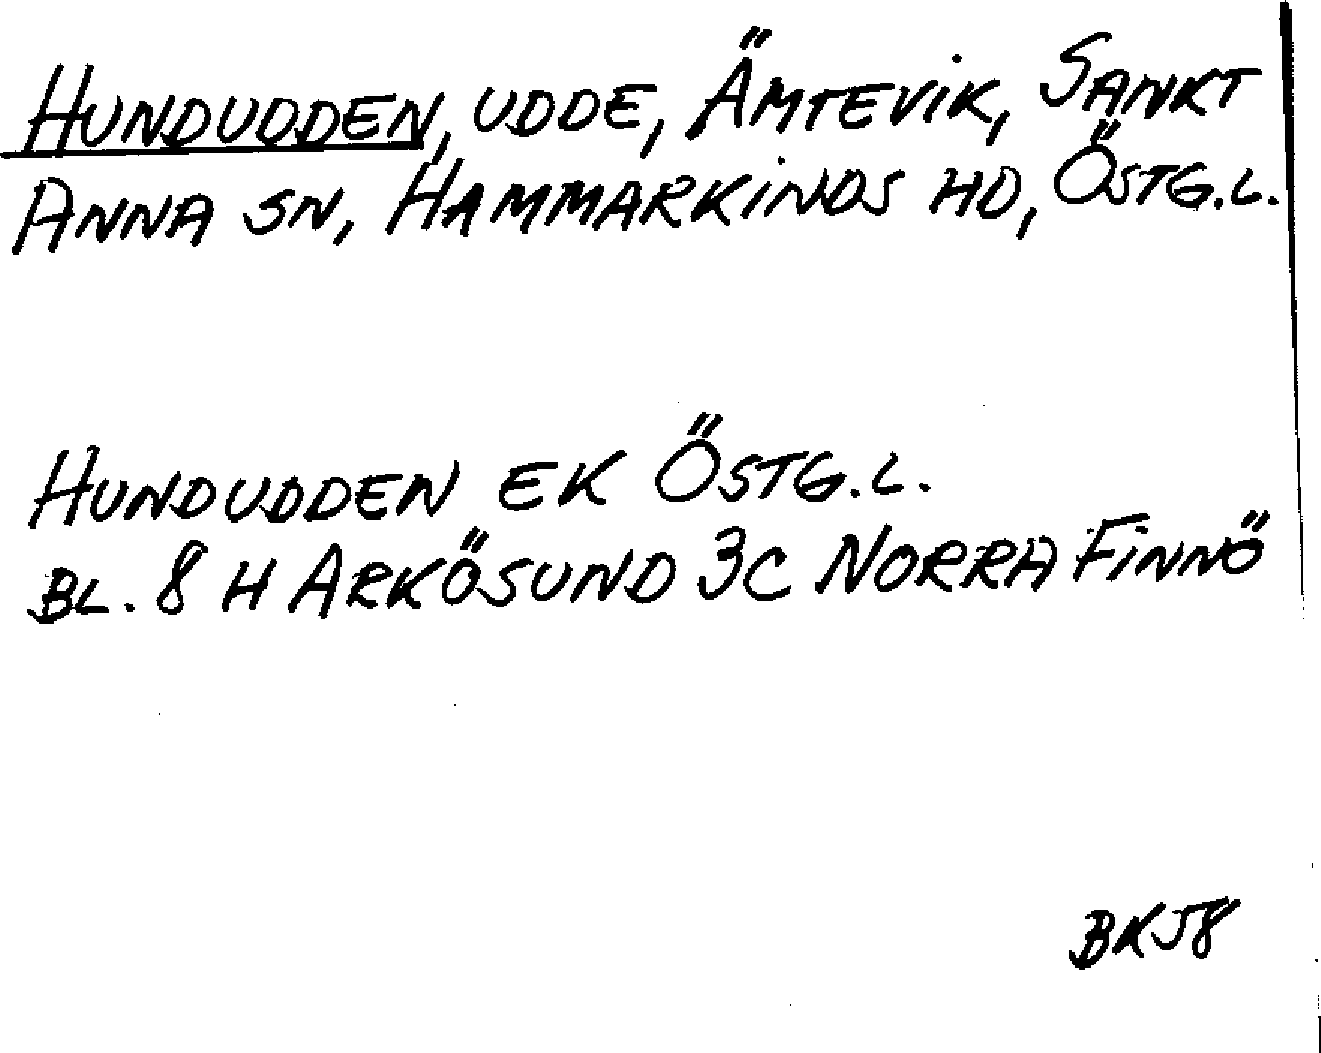 HUNDUDDEN, UDDE, ÄMTEVIK, SANKT
ANNA SN, HAMMARKINDS HD, ÖSTG.L.
HUNDUDDEN EK ÖSTG.L.
BL. 8 H ARKÖSUND 3C NORRA FINNÖ
BK58